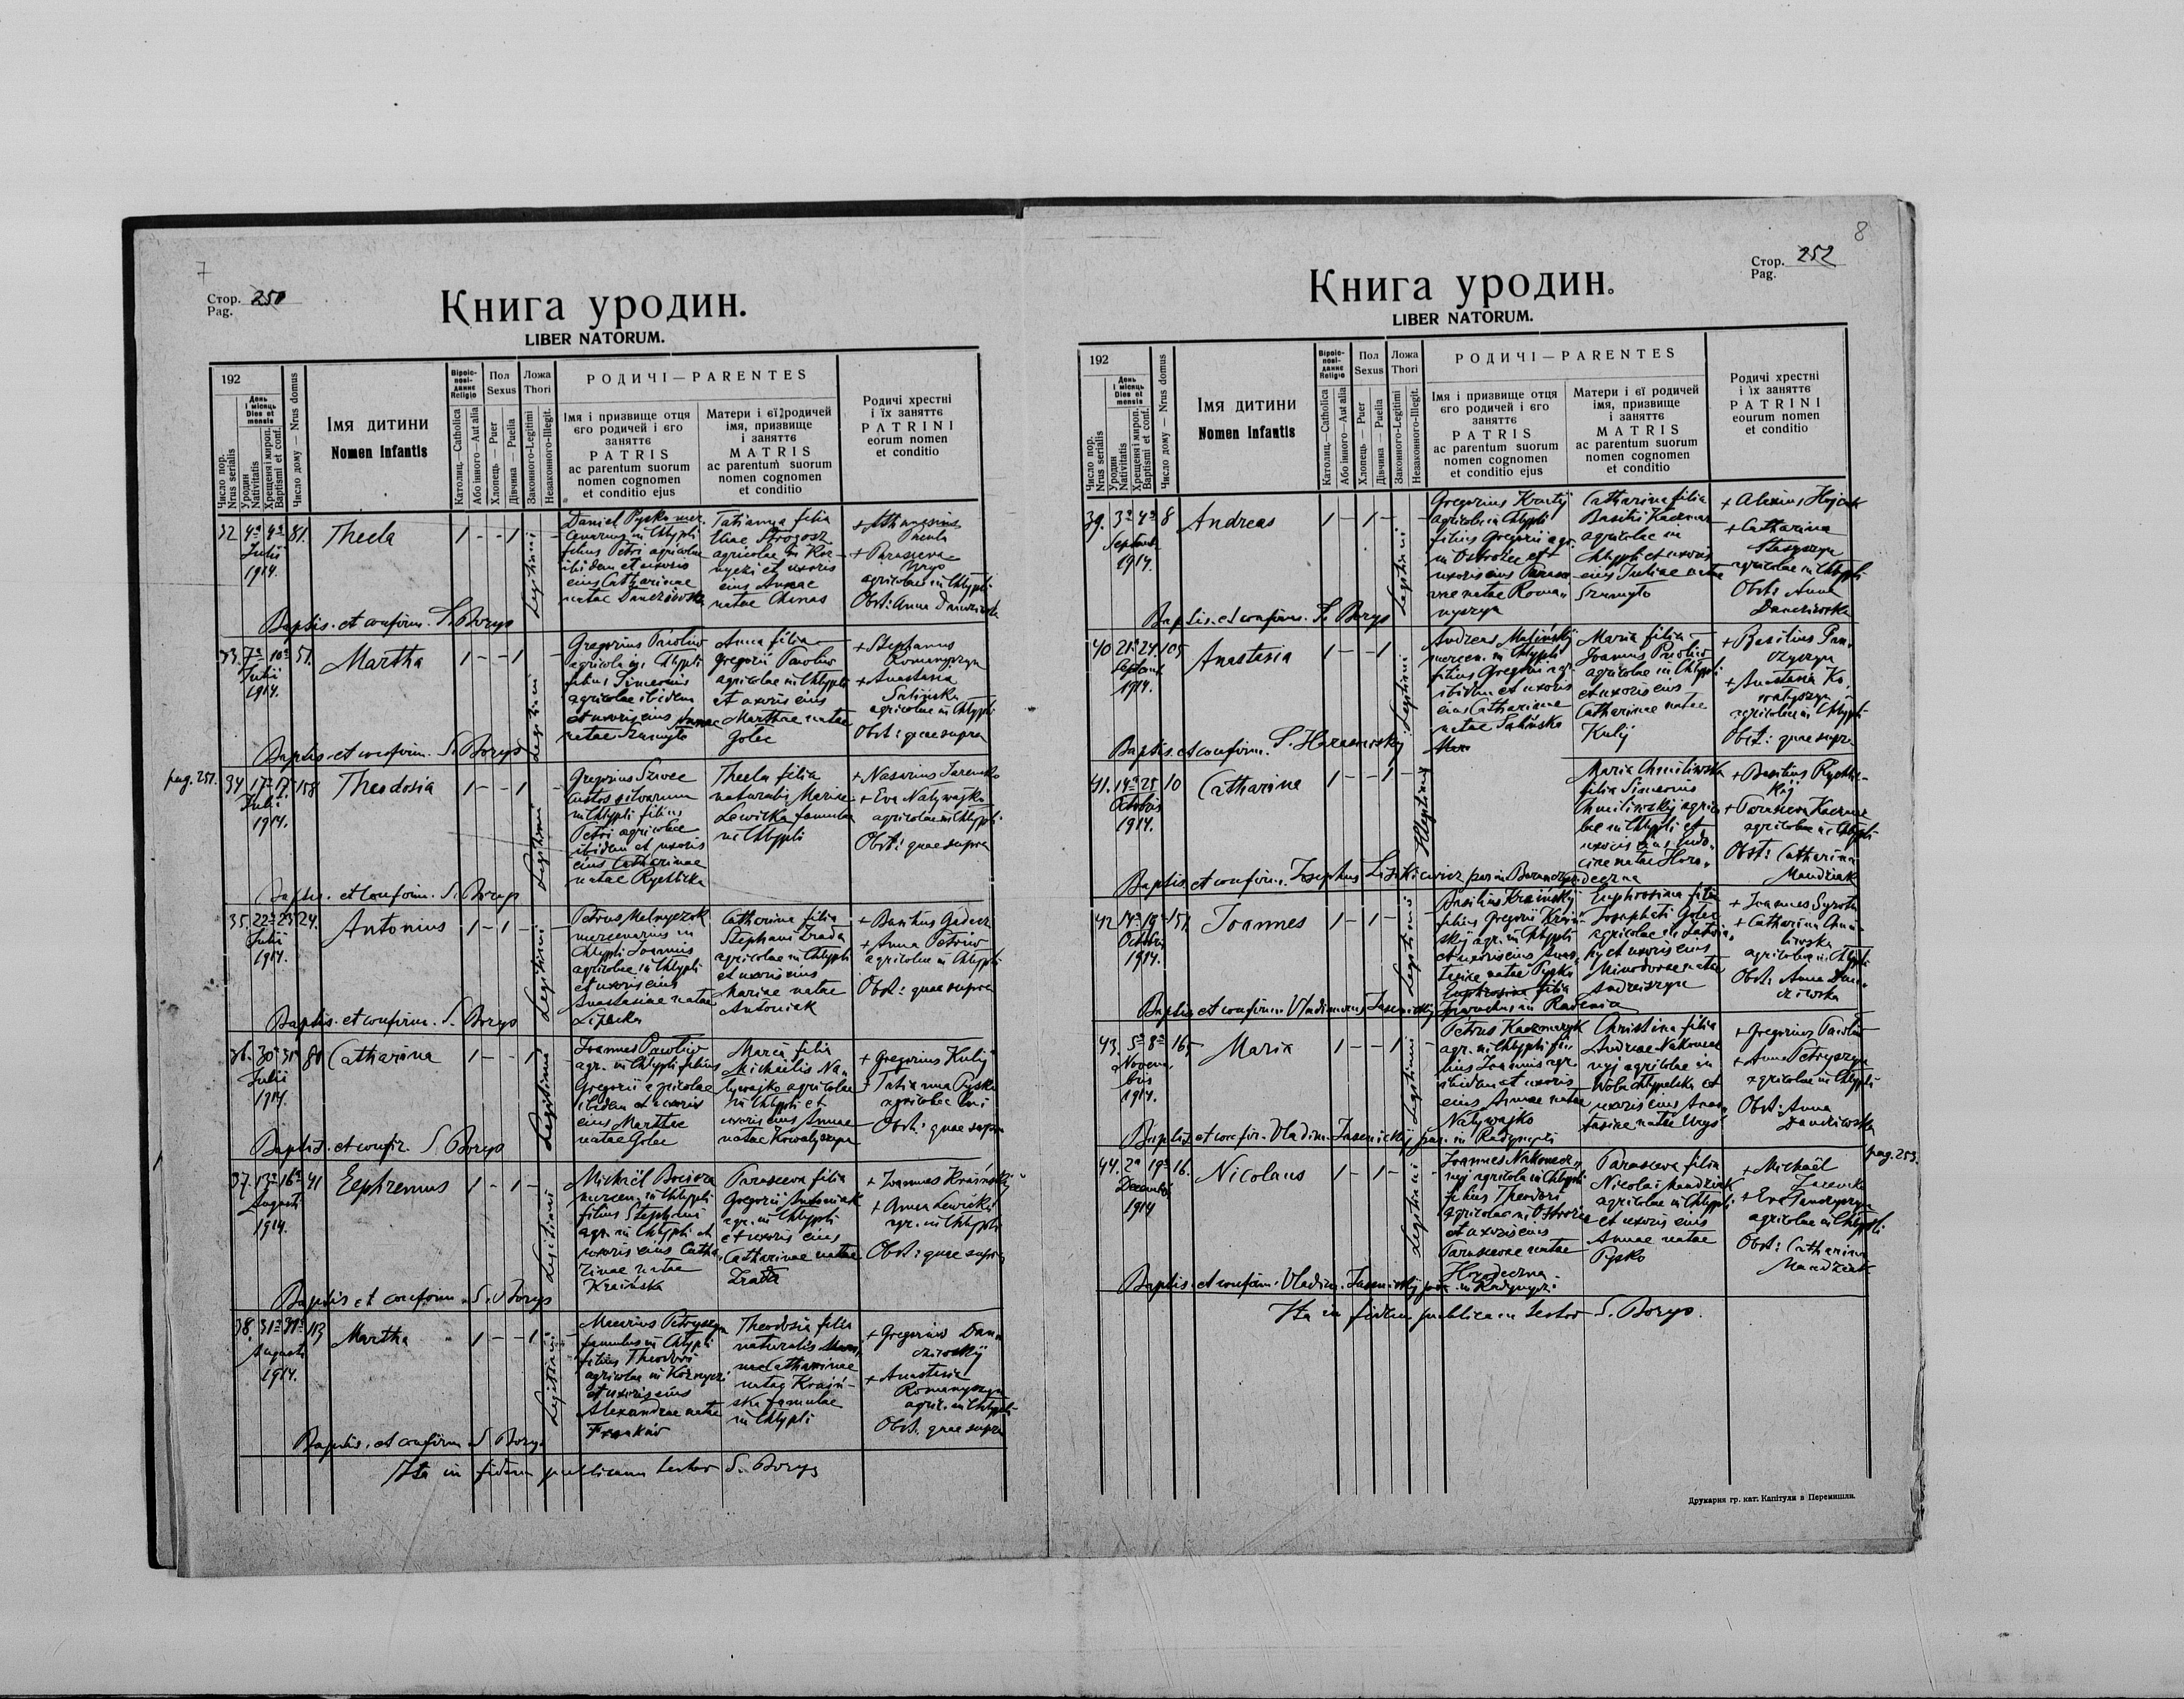 7
Стор. 250
Pag.
Книга уродин.
LIBER NATORUM.
192
Число пор.
Nrus serialis
День і місяць
Dies et mensis
Уродин
Nativitatis
Хрещеня і мироп.
Baptismi et conf.
Число дому — Nrus domus
Імя дитини
Nomen Infantis
Віроісповіданнє
Religio
Католиц.—Catholica
Або інного—Aut alia
Пол
Sexus
Хлопець — Puer
Дівчина — Puella
Ложа
Thori
Законного-Legitimi
Незаконного-Illegit.
РОДИЧІ — PARENTES
Імя і призвище отця
єго родичей і єго
заняттє
PATRIS
ac parentum suorum
nomen cognomen
et conditio ejus
Матери і єї родичей
імя, призвище
і заняттє
MATRIS
ac parentum suorum
nomen cognomen
et conditio
Родичі хрестні
і їх заняттє
PATRINI
eorum nomen
et conditio
32 4ª 4ª 81. Thecla 1 - - 1 Legitimi
Julii
1914.
Daniel Pysko mer-
cenarius in Chłypli
filius Petri agricolae
ibidem et uxoris
eius Catharinae
natae Dancziwska
Tatianna filia
Eliae Strogosz
agricolae in Kor-
nyczi et uxoris
eius Annae
natae Chmas
+ Athanasius
+ Parasceva
agricolae in Chłypli
Obst: Anna Danczivska
Baptis. et confirm. S. Borys
33. 7ª 10ª 51. Martha 1 - - 1 - Legitimi
Julii
1914.
Gregorius Pawliw
agricola in Chłypli
filius Simeonis
agricolae ibidem
et uxoris eius Annae
natae Szumyło
Anna filia
Gregorii Pawliw
agricolae in Chłypli
et uxoris eius
Marthae natae
Golec
+ Stephanus
Romanyszyn
+ Anastasia
Salińska
agricolae in Chłypli
Obst: quae supra
Baptis. et confirm. S. Borys
pag. 251.
34 17ª 17ª 158 Theodosia 1 - - 1 - Legitimi
Julii
1914.
Gregorius Szwec
custos silvarum
in Chłypli filius
Petri agricolae
ibidem et uxoris
eius Catharinae
natae Rychlicka
Thecla filia
naturalis Mariae
Lewicka famula
in Chłypli
+ Nasarius Jaremko
+ Eva Naływajko
agricolae in Chłypli
Obst: quae supra
Baptis. et confirm. S. Borys
35. 22ª 23ª 24. Antonius 1 - 1 - Legitimi
Julii
1914.
Petrus Melnyczok
mercenarius in
Chłypli Joannis
agricolae in Chłypli
et uxoris eius
Anastasiae natae
Lipecka
Catharina filia
Stephani Zrada
agricolae in Chłypli
et uxoris eius
Mariae natae
Antoniak
+ Anna Petriw
agricolae in Chłypli
Obst: quae supra
Baptis. et confirm. S. Borys
36. 30ª 31ª 80 Catharina 1 - - 1 - Legitimi
Julii
1914.
Joannes Pawliw
agr. in Chłypli filius
Gregorii agricolae
ibidem et uxoris
eius Marthae
natae Golec
Maria filia
Michaelis Na-
ływajko agricolae
in Chłypli et
uxoris eius Annae
natae Kowalyszyn
+ Gregorius Kulij
+ Tatianna Pysko
agricolae
Obst: quae supra
Baptis. et confir. S. Borys
37. 13ª 16ª 41 Eephremus 1 - 1 - Legitimi
Augusti
1914.
Michaël
mercen. in Chłypli
filius Stephani
agr. in Chłypli et
uxoris eius Catha-
rinae natae
Kraińska
Parasceva filia
Gregorii Antoniak
agr. in Chłypli
et uxoris eius
Catharinae natae
Zrada
+ Joannes Kraiński
+ Anna Lewicka
agr. in Chłypli
Obst: quae supra
Baptis. et confirm. S. Borys
38. 31ª 31ª 113 Martha 1 - - 1 - Legitimi
Augusti
1914.
Petryszyn
famulus in Chłypli
filius Theodori
agricolae in Kornyczi
et uxoris eius
Alexandrae natae
Franków
Theodosia filia
naturalis
Catharinae
natae Kraiń-
ska famulae
in Chłypli
+ Gregorius Dan-
cziwskij
+ Anastasia
Romanyszyn
agric. in Chłypli
Obst. quae supra
Baptis. et confirm S. Borys
Ita in fidem publicam testor S. Borys
8
Стор. 252
Pag.
Книга уродин.
LIBER NATORUM.
192
Число пор.
Nrus serialis
День і місяць
Dies et mensis
Уродин
Nativitatis
Хрещеня і мироп.
Baptismi et conf.
Число дому — Nrus domus
Імя дитини
Nomen Infantis
Віроісповіданнє
Religio
Католиц.—Catholica
Або інного—Aut alia
Пол
Sexus
Хлопець — Puer
Дівчина — Puella
Ложа
Thori
Законного-Legitimi
Незаконного-Illegit.
РОДИЧІ — PARENTES
Імя і призвище отця
єго родичей і єго
заняттє
PATRIS
ac parentum suorum
nomen cognomen
et conditio ejus
Матери і єї родичей
імя, призвище
і заняттє
MATRIS
ac parentum suorum
nomen cognomen
et conditio
Родичі хрестні
і їх заняттє
PATRINI
eourum nomen
et conditio
39. 3ª 4ª 8 Andreas 1 - 1 - Legitimi
Septemb.
1914.
Gregorius
agricola in Chłypli
filius Gregorii agr.
in Ostrożec et
uxoris eius Parasce-
vae natae Roma-
nyszyn
Catharina filia
Basilii Kaczmar
agricolae in
Chłypli et uxoris
eius Juliae natae
Szumyło
+ Alexius
+ Catharina
Stasyszyn
agricolae in Chłypli
Obst: Anna
Dancziwska
Baptis. et confirm. S. Borys
40 21ª 24ª 105 Anastasia 1 - - 1 Legitimi
Septemb.
1914.
Andreas Maliński
mercen. in Chłypli
filius Gregorii agr.
ibidem et uxoris
eius Catharinae
natae Salińska
Maria filia
Joannis Pawliw
agricolae in Chłypli
et uxoris eius
Catharinae natae
Kulij
+ Basilius Pan-
czyszyn
+ Anastasia Ko-
walyszyn
agricolae in Chłypli
Obst: quae supra
Baptis. et confirm. S. Harasowskij
41. 14ª 25 10 Catharina 1 - - 1 - Illegitimi
Octobris
1914.
Maria Chmiliwska
filia Simeonis
Chmiliwskij agrico-
lae in Chłypli et
uxoris eius Eudo-
ciae natae Horo-
deczna
+ Basilius Rychlic-
kij
+ Parasceva Kaczmar
agricolae in Chłypli
Obst: Catharina
Mandziak
Baptis. et confirm. Josephus Liszkiewicz par. in
42 14ª 19ª 151 Joannes 1 - 1 - Legitimi
Octobris
1914.
Basilius Kraińskij
filius Gregorii Kraiń-
skij agr. in Chłypli
et uxoris eius Anas-
tasiae natae Pysko
Euphrosina filia
Euphrossina filia
Josaphati Golec
agricolae in
et uxoris eius
Minodorae natae
Andreiszyn
+ Joannes Syrota
+ Catharina Chmi-
liwska
agricolae in Chłypli
Obst: Anna Dan-
cziwska
Baptis et confirm. Vladimirus Jasenickij parochus in Radenia
43. 5ª 8ª 165 Maria 1 - - 1 - Legitimi
Novem-
bris
1914.
Petrus Kaczmaryk
agr. in Chłypli fi-
lius Joannis agr.
ibidem et uxoris
eius Annae natae
Naływajko
Christina filia
Andreae Nakonecz-
nyj agricolae in
Wola chłypelska et
uxoris eius Anas-
tasiae natae Urys
+ Gregorius Pawliw
+ Anna Petryszyn
agricolae in Chłypli
Obst: Anna
Dancziwska
Baptis. et confir. Vladim. Jasenickij par. in Radynyczi
pag. 253.
44. 2ª 19ª 16. Nicolaus 1 - 1 - Legitimi
Decembris
1914
Joannes Nakonecz-
nyj agricola in Chłypli
filius Theodori
agricolae in Ostrożec
et uxoris eius
Parascevae natae
Horodeczna
Parasceva filia
Nicolai Mandziak
agricolae in Chłypli
et uxoris eius
Annae natae
Pysko
+ Michaël
Jaremko
+ Eva Panczyszyn
agricolae in Chłypli
Obst: Catharina
Mandziak
Baptis. et confirm. Vladim. Jasenickij par. in Radynyczi
Ita in fidem publicam testor S. Borys.
Друкарня гр. кат. Капітули в Перемишли.